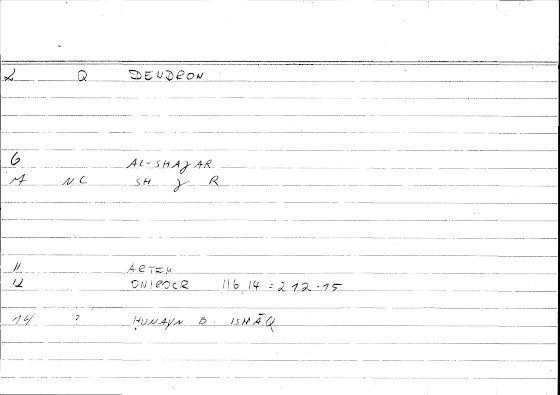 2 Q DENDRON
6 AL-SHAJAR
M NC SH J R
11 ARTEM
12 ONIROCR 116,14 = 212.15
14 ? ḤUNAYN B. ISḤĀQ